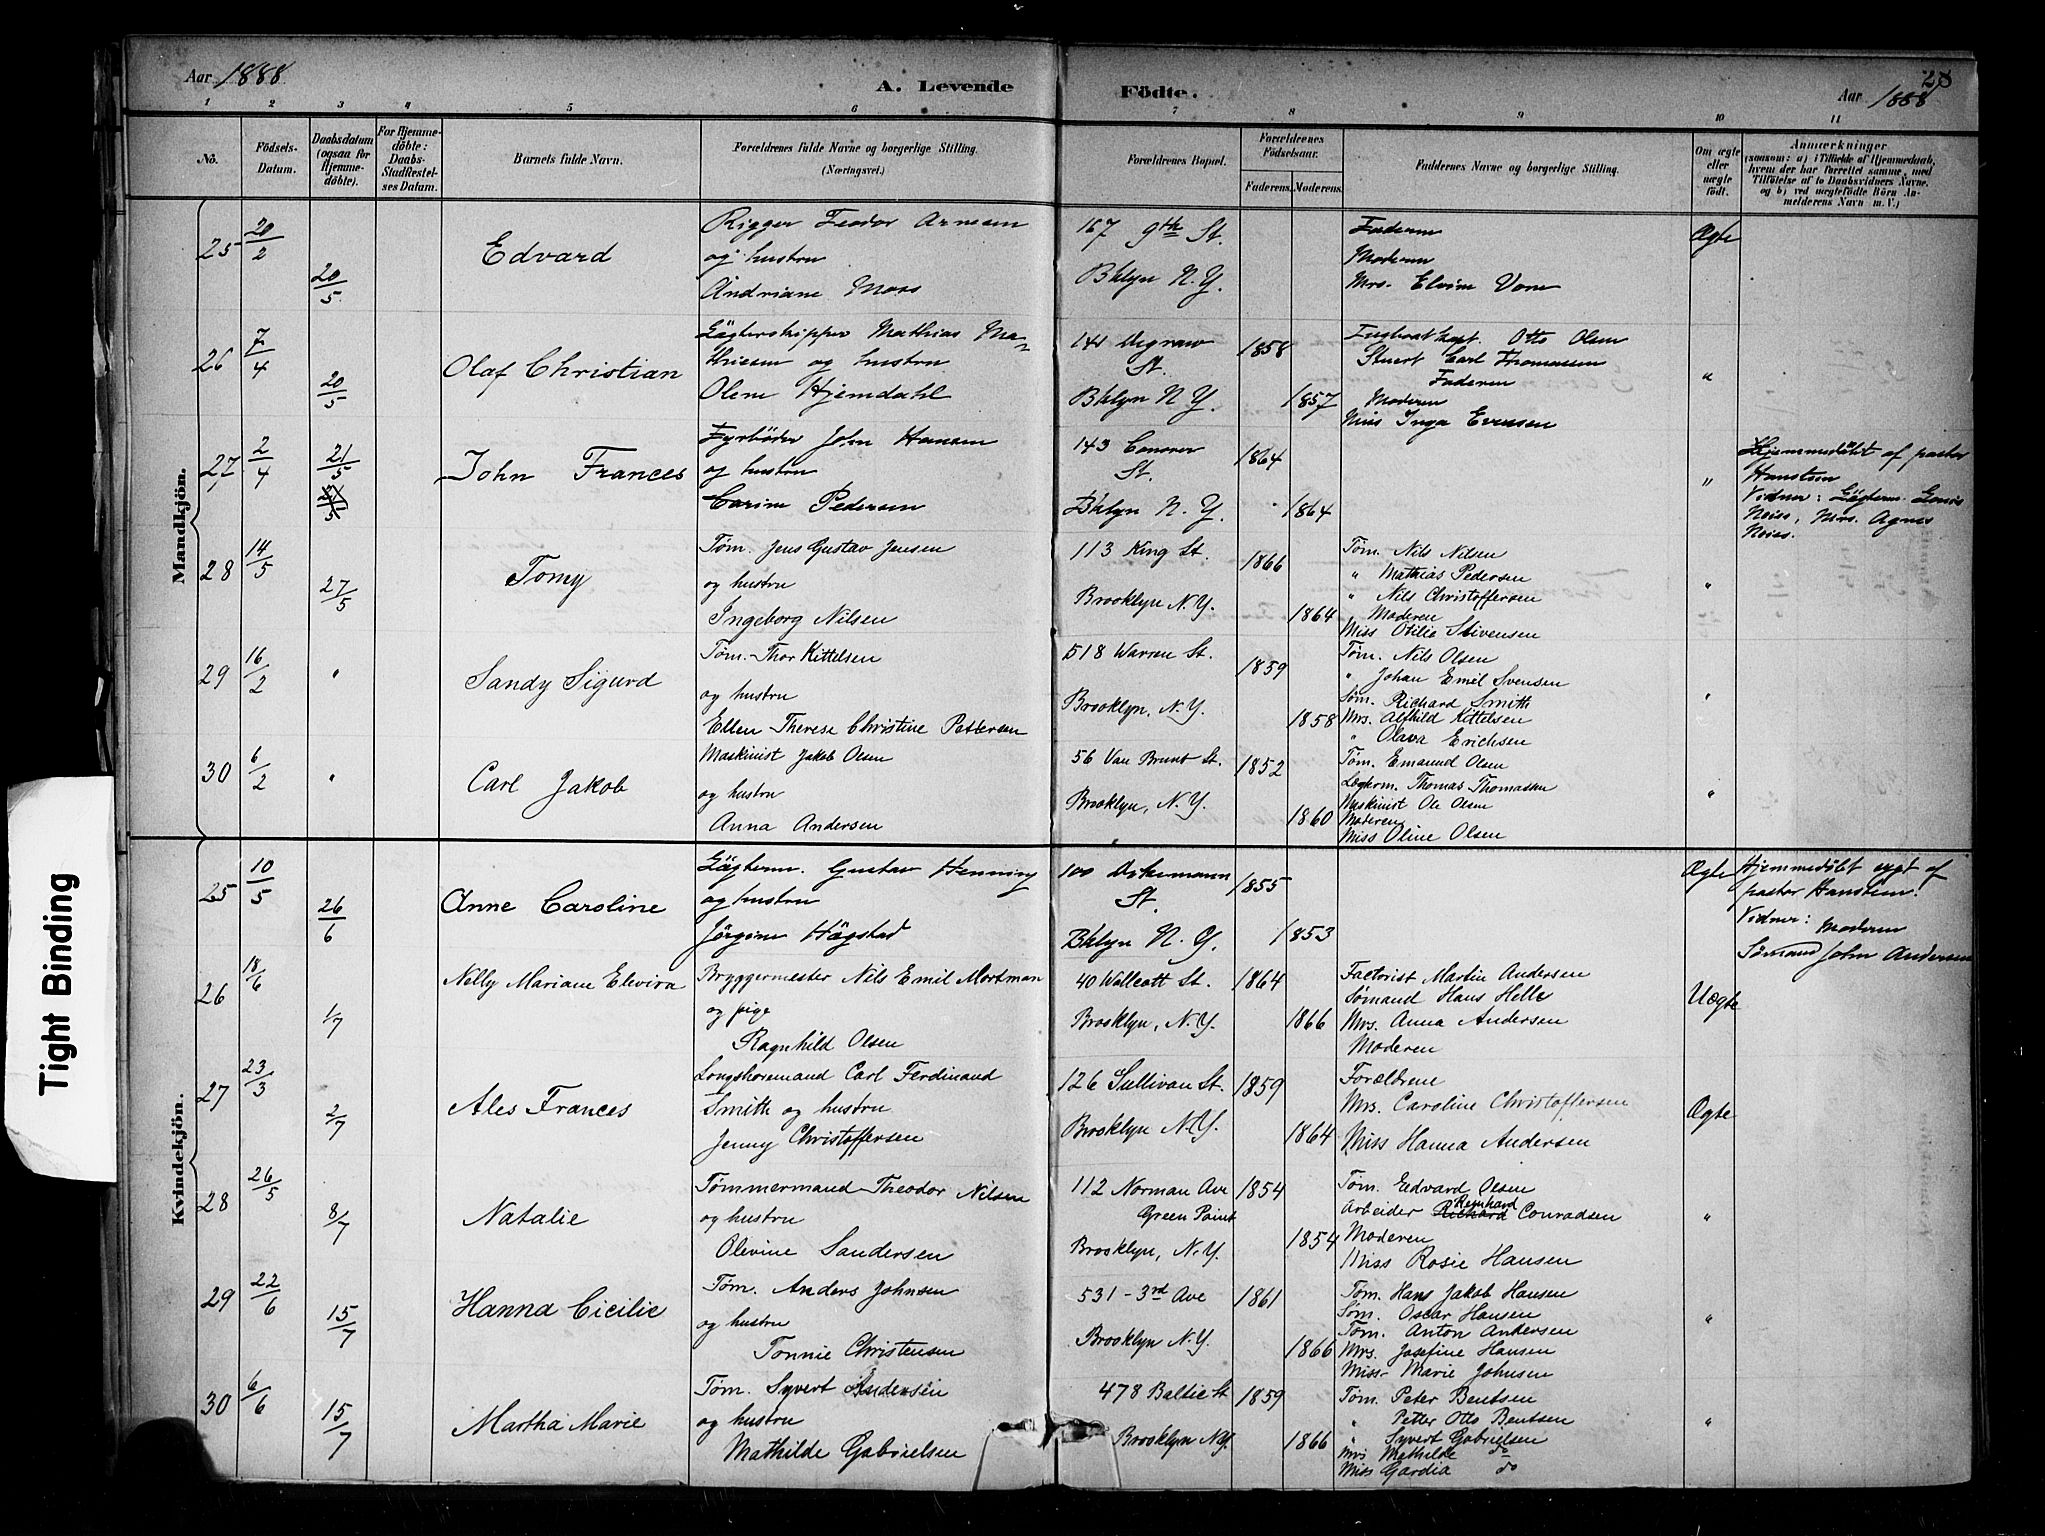 Aar 1888. A. Levende Födte. Aar 1888 28
1 2 3 4 5 6 7 8 9 10 11
No. Födsels-Datum. Daabsdatum (ogsaa for Hjemme-döbte). For Hjemme-döbte: Daabs-Stadfæstel-ses Datum. Barnets fulde Navn. Forældrenes fulde Navne og borgerlige Stilling. (Næringsvei.) Forældrenes Bopæl. Forældrenes Födselsaar. Faderens. Moderens. Faddernes Navne og borgerlige Stilling. Om ægte eller uægte födt. Anmærkninger (saasom: a) i Tilfælde af Hjemmedaab, hvem der har forrettet samme, med Tilföielse af to Daabsvidners Navne, og b) ved uægtefödte Börn An-melderens Navn m. V.)
Mandkjön.
25 20/2 20/5 Edvard
Rigger Teodor Arnesen
og hustru
Andriane Moss
167 9th St.
Bklyn N.Y.
Faderen
Moderen
Mrs. Elvine Vorn
Ægte
26 7/4 20/5 Olaf Christian
Lägterskipper Mathias Ma-
thiesen og hustru
Olene Hjemdahl
141 Degraw 1858
St.
Bklyn N.Y. 1857
Tugboat kapt. Otto Olsen
Stuert Carl Thomassen
Faderen
Moderen
Miss Inga Evensen
"
27 2/4 21/5 John Frances
Fyrböder John Hansen
og hustru
Carine Pedersen
143 Conover 1864
St.
Bklyn N.Y. 1864
"
Hjemmedöbt af pastor
Hanstein
Vidner: Lägterm. Louis
Neiss, Mrs. Agnes
Neiss.
28 14/5 27/5 Tomy
Tøm. Jens Gustav Jensen
og hustru
Ingeborg Nilsen
113 King St. 1866
Brooklyn N.Y. 1864
Tøm. Nils Nilsen
" Mathias Pedersen
" Nils Christoffersen
" Moderen
Miss Otilie Stivensen
"
29 16/2 " Sandy Sigurd
Tøm. Thor Kittelsen
og hustru
Ellen Therese Christine Pettersen
518 Warren St. 1859
Brooklyn, N.Y. 1858
Tøm. Nils Olsen
" Johan Emil Svensen
Søm. Richard Smith
Mrs. Alfhild Kittelsen
" Olava Erichsen
"
30 6/2 " Carl Jakob
Maskinist Jakob Olsen
og hustru
Anna Andersen
56 Van Brunt St. 1852
Brooklyn, N.Y. 1860
Tøm. Emanuel Olsen
Lægterm. Thomas Thomassen
Maskinist Ole Olsen
Moderen
Miss Oline Olsen
"
Kvindekjön.
25 10/5 26/6 Anne Caroline
Lägterm. Gustav Henning
og hustru
Jörgine Högstad
100 Dikemann 1855
St.
Bklyn N.Y. 1853
Ægte
Hjemmedöbt sygt af
pastor Hanstein.
Vidner: Moderen
Sömand John Andersen
26 18/6 1/7 Nelly Mariane Elevira
Bryggermester Nils Emil Mortman
og pige
Ragnhild Olsen
40 Wallcott St. 1864
Brooklyn, N.Y. 1866
Factorist Martin Andersen
Sømand Hans Helle
Mrs. Anna Andersen
Moderen
Uægte
27 23/3 2/7 Ales Frances
Longshoremand Carl Ferdinand
Smith og hustru
Jenny Christoffersen
126 Sullivan St. 1859
Brooklyn N.Y. 1864
Forældrene
Mrs. Caroline Christoffersen
Miss Hanna Andersen
Ægte
28 26/5 8/7 Natalie
Tømmermand Theodor Nilsen
og hustru
Olevine Sandersen
112 Norman Ave 1854
Green Point
Brooklyn, N.Y. 1854
Tøm. Edvard Olsen
Arbeider Richard Reinhard Conradsen
Moderen
Miss Rosie Hansen
"
29 22/6 15/7 Hanna Cicilie
Tøm. Anders Johnsen
og hustru
Tonnie Christensen
531 - 3rd Ave 1861
Brooklyn N.Y. 1866
Tøm. Hans Jakob Hansen
Søm. Oscar Hansen
Tøm. Anton Andersen
Mrs. Josefine Hansen
Miss Marie Johnsen
"
30 6/6 15/7 Martha Marie
Tøm. Syvert Andersen
og hustru
Mathilde Gabrielsen
478 Baltic St 1859
Brooklyn N.Y. 1866
Tøm. Peter Bentsen
" Petter Otto Bentsen
" Syvert Gabrielsen
Mrs Mathilde do
Miss Gardia do
"
Tight Binding